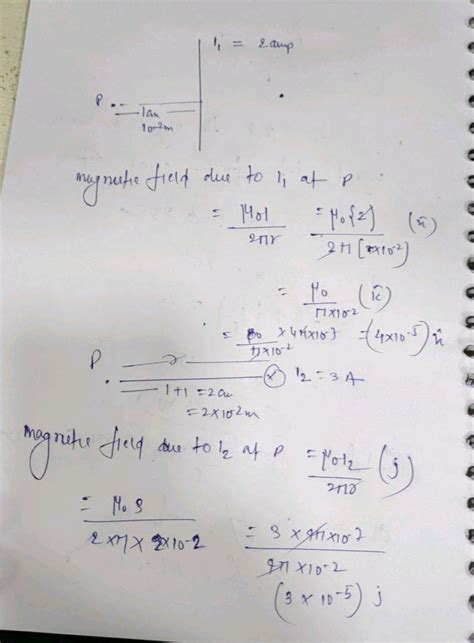 I₁ = 2amp
P
1cm
10⁻²m
magnetic field due to I₁ at P
= μ₀I / 2πr = μ₀{2} / 2π[ ×10⁻²] (k̂)
= μ₀ / π×10⁻² (k̂)
= × 4π×10⁻⁷ / π×10⁻² = (4×10⁻⁵) k̂
P r
⊗ I₂ = 3A
1+1 = 2cm
= 2×10⁻²m
magnetic field due to I₂ at P = μ₀I₂ / 2πr (j)
= μ₀3 / 2×π×2×10⁻² = 3 × ×10⁻⁷ / ×10⁻²
(3×10⁻⁵) j